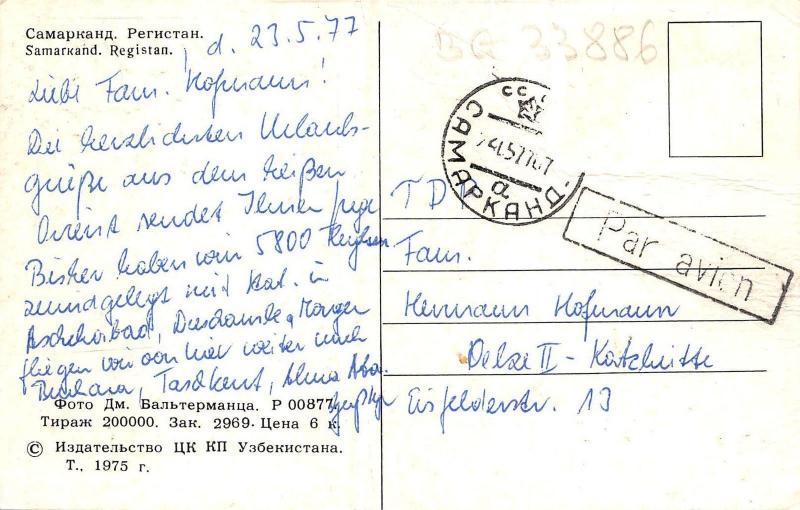 Самарканд. Регистан.
Samarкand. Registan.
d. 23.5.77
Liebe Fam. Hofmann!
Die herzlichsten Urlaubs-
grüße aus dem heißen
Orient sendet Ihnen
Bisher haben wir 5800
zurückgelegt mit in
Aschchabad, Duschanbe, Morgen
fliegen wir von hier weiter nach
Buchara, Taschkent, Alma Ata.
Фото Дм. Бальтерманца. Р 00877.
Тираж 200000. Зак. 2969. Цена 6 к.
© Издательство ЦК КП Узбекистана.
Т., 1975 г.
BG 33886
САМАРКАНД
Par avion
Fam.
Hermann Hofmann
Oelze II - Katzhütte
Eisfelderstr. 13